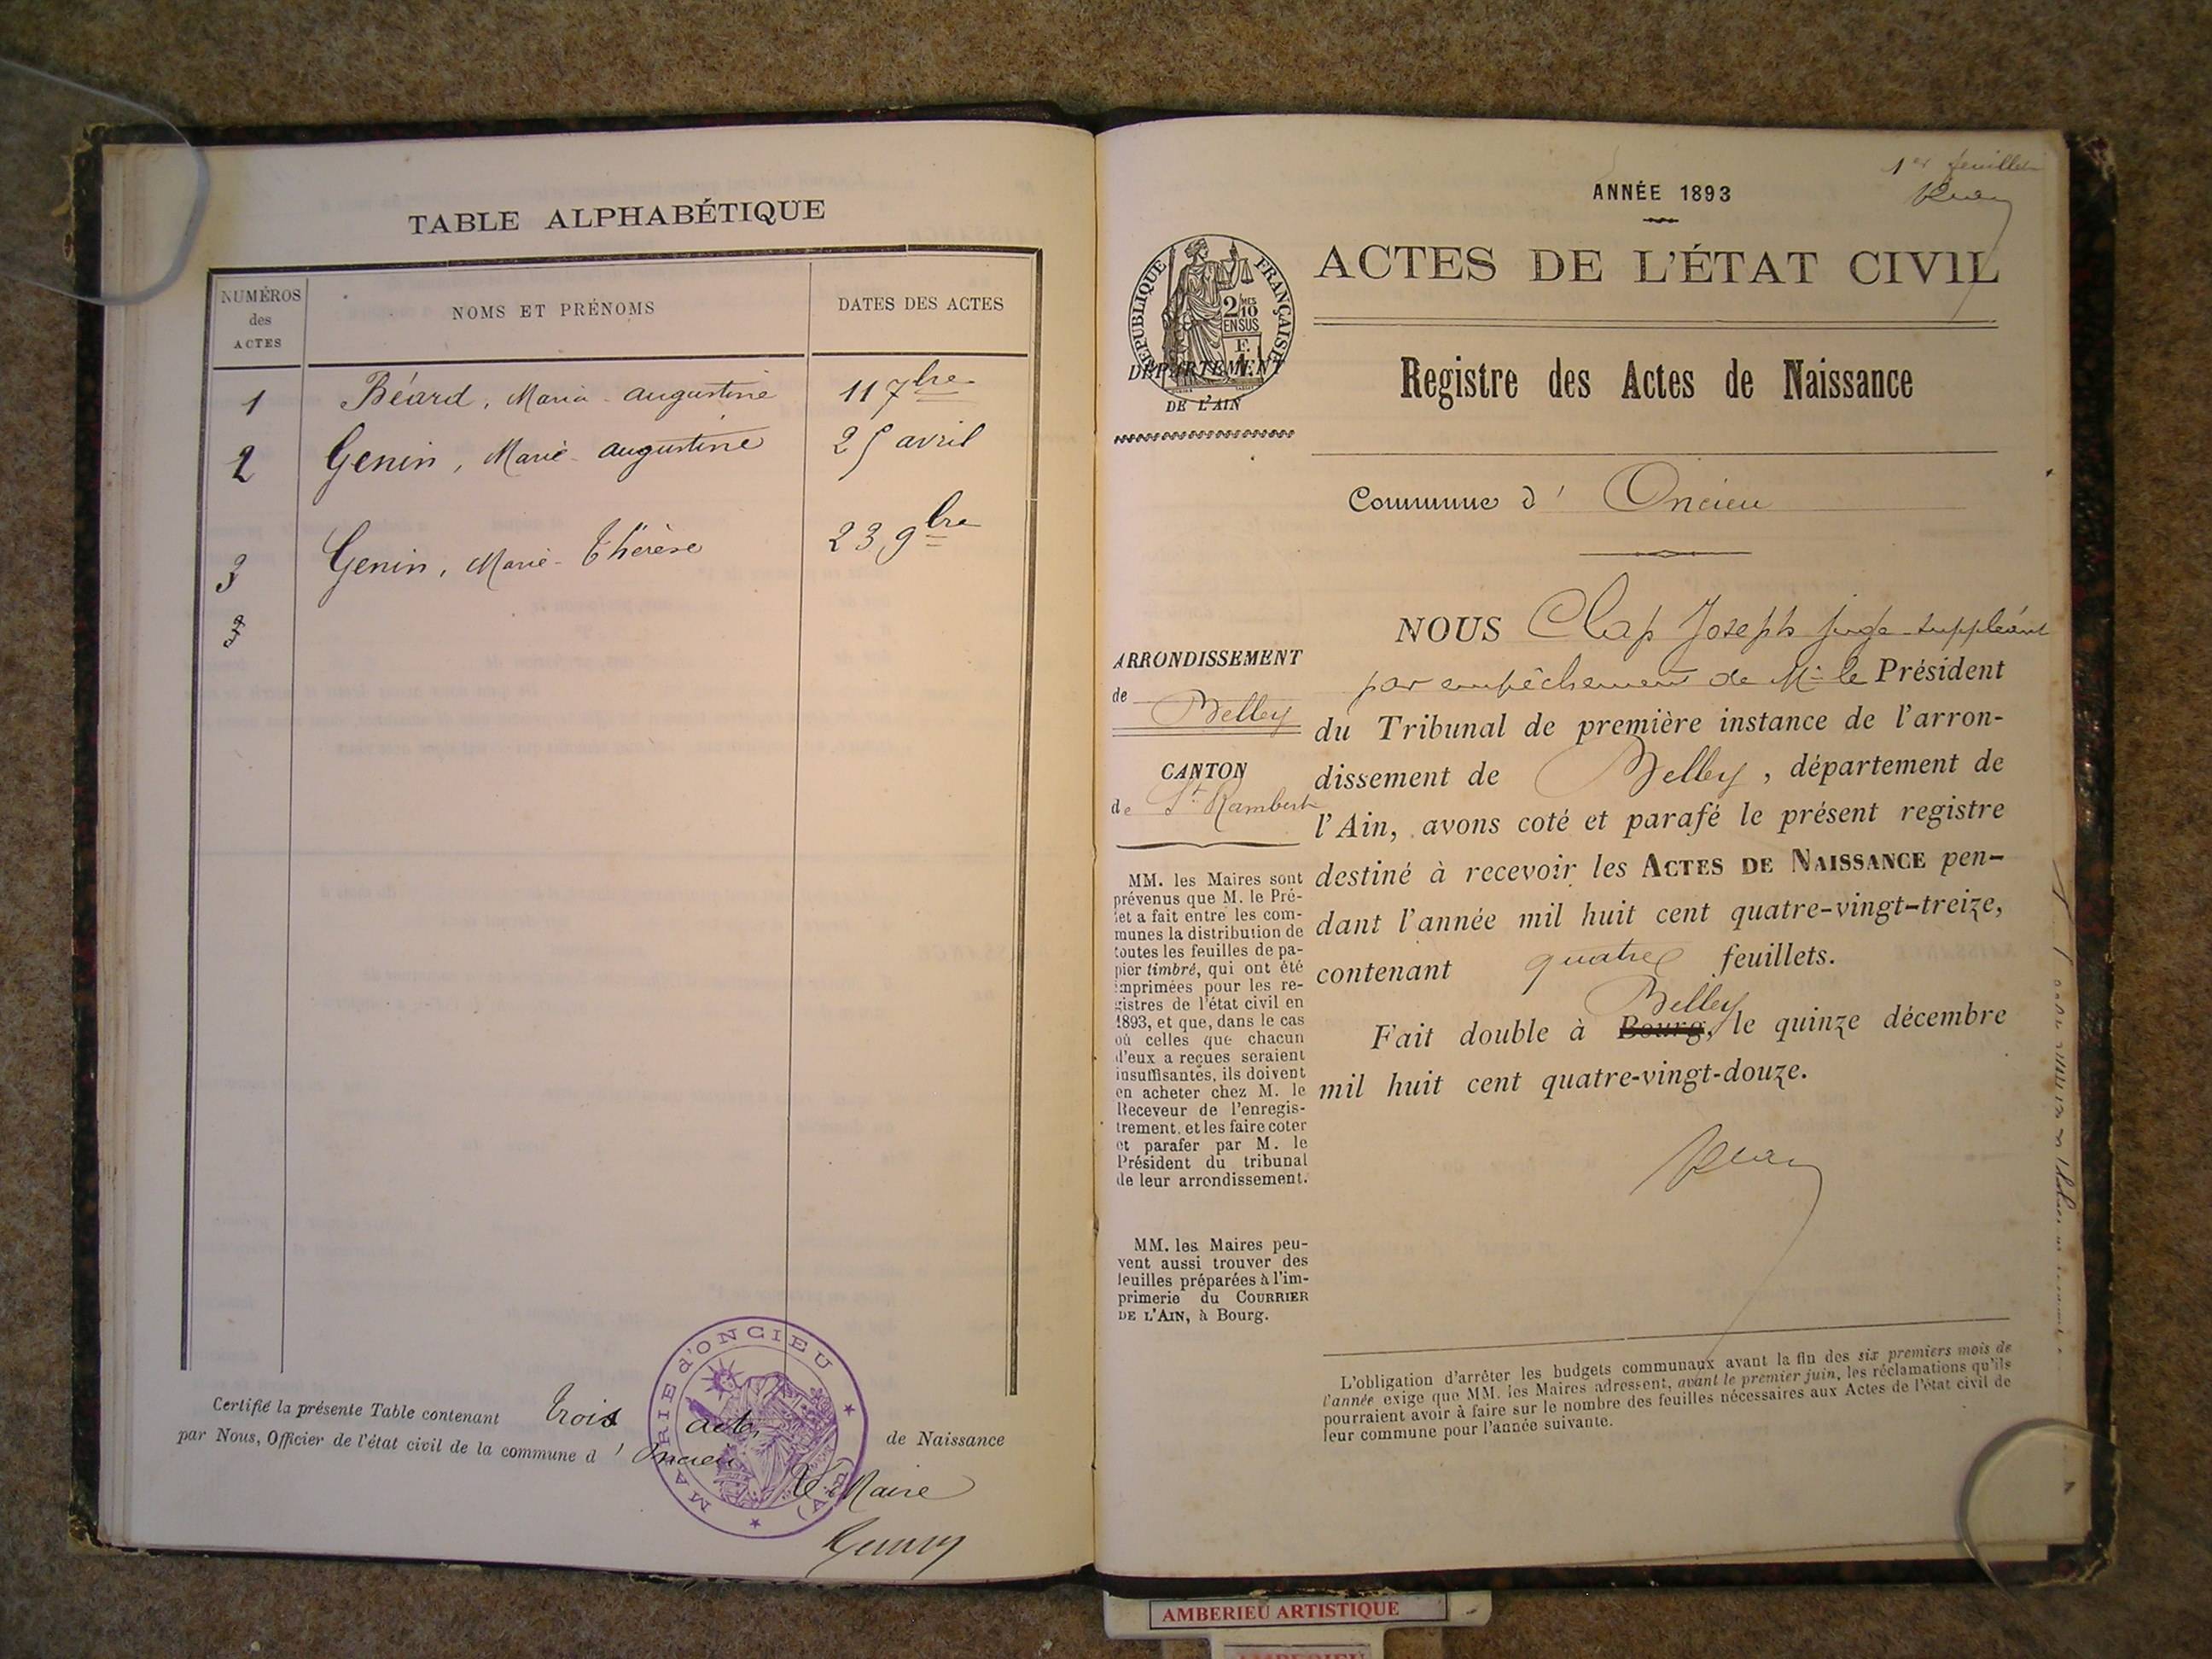 TABLE ALPHABÉTIQUE
NUMÉROS
des
ACTES
NOMS ET PRÉNOMS
DATES DES ACTES
1 Béard, Maria-augustine 11 7bre
2 Genin, Marie-augustine 25 avril
3 Genin, Marie-Thérèse 23, 9bre
Certifié la présente Table contenant trois actes de Naissance
par Nous, Officier de l'état civil de la commune d'Oncieu
Le Maire
MAIRIE d'ONCIEU
(AIN)
1er feuillet
ANNÉE 1893
ACTES DE L'ÉTAT CIVIL
RÉPUBLIQUE FRANÇAISE
2 10
MES
EN SUS
DÉPARTEMENT
DE L'AIN
Registre des Actes de Naissance
Commune d' Oncieu
ARRONDISSEMENT
de Belley
CANTON
de St Rambert
MM. les Maires sont
prévenus que M. le Pré-
fet a fait entre les com-
munes la distribution de
toutes les feuilles de pa-
pier timbré, qui ont été
imprimées pour les re-
gistres de l'état civil en
1893, et que, dans le cas
où celles que chacun
d'eux a reçues seraient
insuffisantes, ils doivent
en acheter chez M. le
Receveur de l'enregis-
trement, et les faire coter
et parafer par M. le
Président du tribunal
de leur arrondissement.
MM. les Maires peu-
vent aussi trouver des
feuilles préparées à l'im-
primerie du COURRIER
DE L'AIN, à Bourg.
NOUS Clap Joseph juge suppléant
par empêchement de Mr le Président
du Tribunal de première instance de l'arron-
dissement de Belley, département de
l'Ain, avons coté et parafé le présent registre
destiné à recevoir les ACTES DE NAISSANCE pen-
dant l'année mil huit cent quatre-vingt-treize,
contenant quatre feuillets.
Belley
Fait double à Bourg, le quinze décembre
mil huit cent quatre-vingt-douze.
L'obligation d'arrêter les budgets communaux avant la fin des six premiers mois de
l'année exige que MM. les Maires adressent, avant le premier juin, les réclamations qu'ils
pourraient avoir à faire sur le nombre des feuilles nécessaires aux Actes de l'état civil de
leur commune pour l'année suivante.
AMBERIEU ARTISTIQUE
AMBERIEU